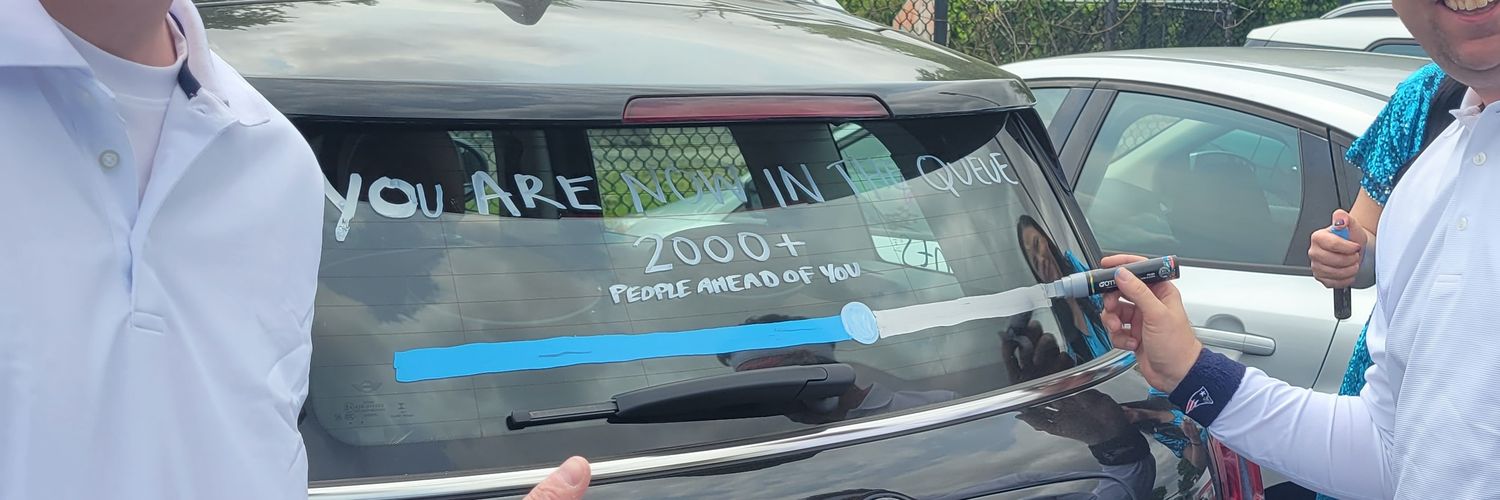 YOU ARE NOW IN THE QUEUE
2000+
PEOPLE AHEAD OF YOU